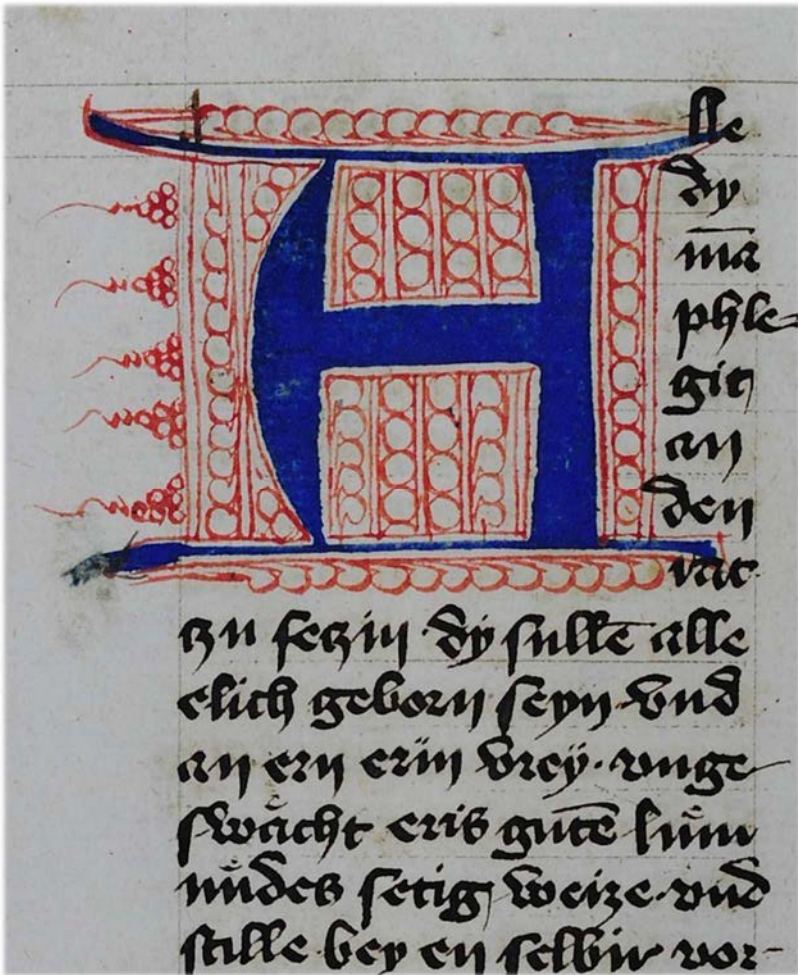 Alle
dy
ma̅
phle-
git
an
den
rat
czu seczin dy sulle̅ alle
elich geborn seyn vnd
an ern erin vrey. vnge
swacht eris gute̅ lum
mudes setig weize vnd
stille bey en selbir vor-